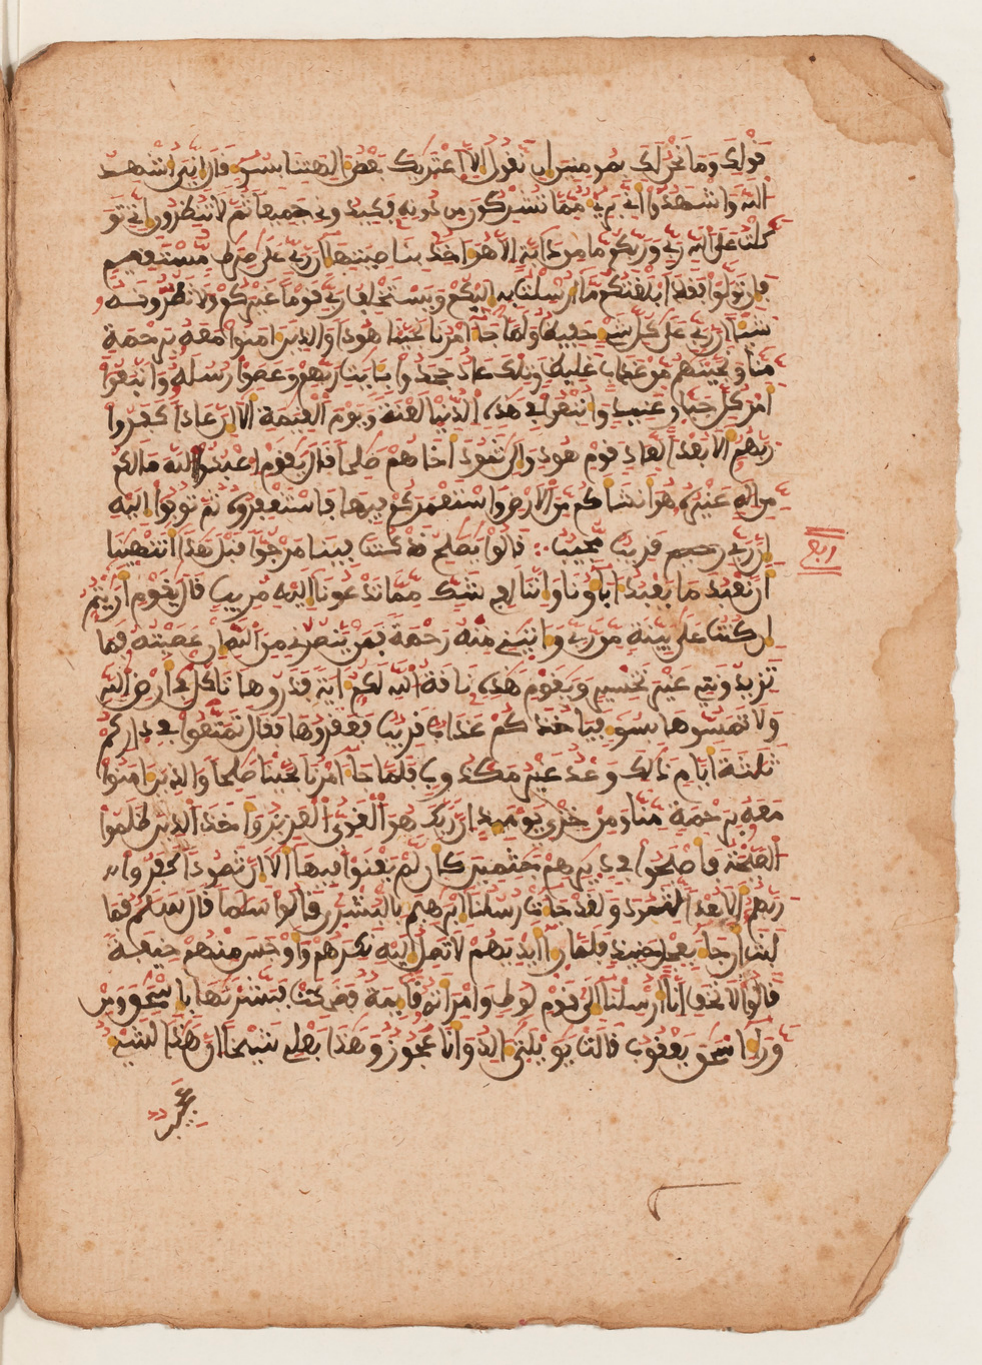 قولك وما نحن لك بمومنين ان نقول الا اعتريك بعض الهتنا بسو قال اني اشهد
الله واشهدوا اني بري مما تشركون من دونه فكيدوني جميعا ثم لا تنظرون اني تو
كلت على الله ربي وربكم ما من دابة الا هو اخذ بناصيتها ان ربي على صرط مستقيم
فان تولوا فقد ابلغتكم ما ارسلت به اليكم ويستخلف ربي قوما غيركم ولا تضرونه
شيا ان ربي على كل شي حفيظ ولما جا امرنا نجينا هودا والذين امنوا معه برحمة
منا ونجينهم من عذاب غليظ وتلك عاد جحدوا بايت ربهم وعصوا رسله واتبعوا
امر كل جبار عنيد واتبعوا في هذه الدنيا لعنة ويوم القيمة الا ان عادا كفروا
ربهم الا بعدا لعاد قوم هود والى ثمود اخاهم صلحا قال يقوم اعبدوا الله مالكم
من اله غيره هو انشاكم من الارض واستعمركم فيها فاستغفروه ثم توبوا اليه
ان ربي قريب مجيب قالوا يصلح قد كنت فينا مرجوا قبل هذا اتنهينا
ان نعبد ما يعبد اباونا واننا لفي شك مما تدعونا اليه مريب قال يقوم اريتم
ان كنت على بينة من ربي واتيني منه رحمة فمن ينصرني من الله ان عصيته فما
تزيدونني غير تخسير ويقوم هذه ناقة الله لكم اية فذروها تاكل في ارض الله
ولا تمسوها بسو فياخذكم عذاب قريب فعقروها فقال تمتعوا في داركم
ثلثة ايام ذلك وعد غير مكذوب فلما جا امرنا نجينا صلحا والذين امنوا
معه برحمة منا ومن خزي يوميذ ان ربك هو القوي العزيز واخذ الذين ظلموا
الصيحة فاصبحوا في ديرهم جثمين كان لم يغنوا فيها الا ان ثمودا كفروا
ربهم الا بعدا لثمود ولقد جات رسلنا ابرهيم بالبشرى قالوا سلما قال سلم فما
لبث ان جا بعجل حنيذ فلما را ايديهم لا تصل اليه نكرهم واوجس منهم خيفة
قالوا لا تخف انا ارسلنا الى قوم لوط وامراته قايمة فضحكت فبشرنها باسحق ومن
ورا اسحق يعقوب قالت يويلتى االد وانا عجوز وهذا بعلي شيخا ان هذا لشي
عجيب
ربع